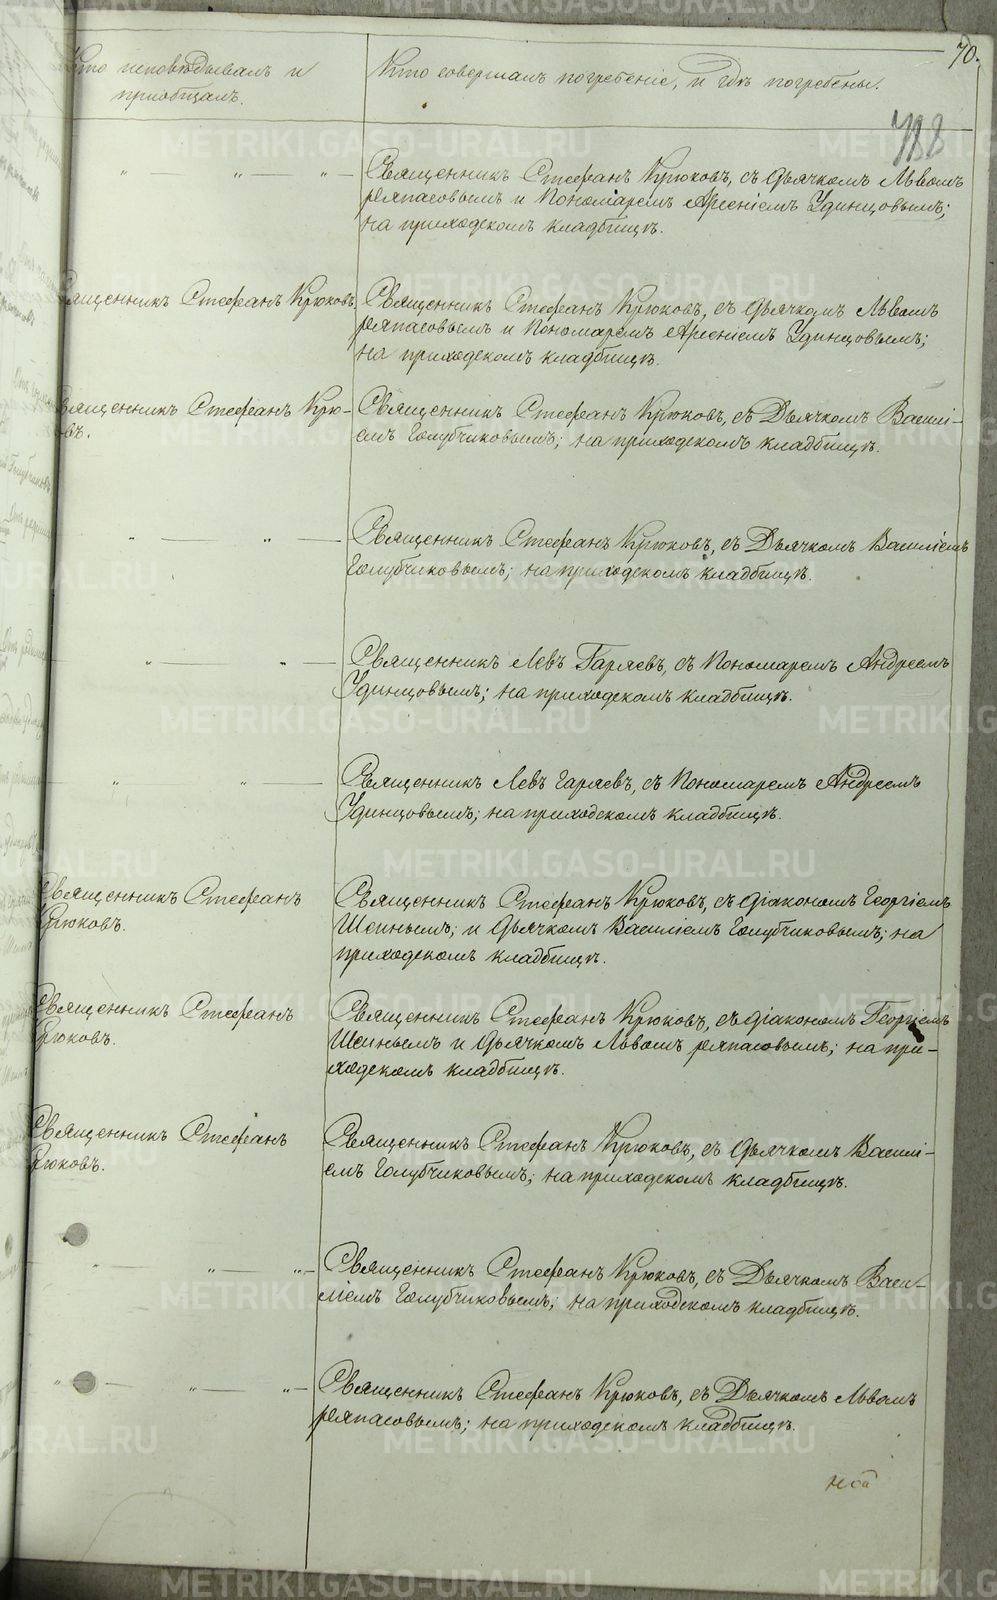 70.
Кто исповѣдывалъ и
пріобщалъ.
Кто совершалъ погребеніе, и гдѣ погребены.
788
" — " — " —
Священникъ Стефанъ Крюковъ, съ дьячкомъ Львомъ
Ряпасовымъ и Пономаремъ Арсеніемъ Удинцовымъ;
на приходскомъ кладбищѣ.
Священникъ Стефанъ Крюковъ.
Священникъ Стефанъ Крюковъ, съ дьячкомъ Львомъ
Ряпасовымъ и Пономаремъ Арсеніемъ Удинцовымъ;
на приходскомъ кладбищѣ.
Священникъ Стефанъ Крю-
овъ.
Священникъ Стефанъ Крюковъ, съ Дьячкомъ Василі-
емъ Голубчиковымъ; на приходскомъ кладбищѣ.
" — " —
Священникъ Стефанъ Крюковъ, съ Дьячкомъ Василіемъ
Голубчиковымъ; на приходскомъ кладбищѣ.
" — " —
Священникъ Левъ Гаряевъ, съ Пономаремъ Андреемъ
Удинцовымъ; на приходскомъ кладбищѣ.
" — " —
Священникъ Левъ Гаряевъ, съ Пономаремъ Андреемъ
Удинцовымъ; на приходскомъ кладбищѣ.
Священникъ Стефанъ
Крюковъ.
Священникъ Стефанъ Крюковъ, съ діакономъ Георгіемъ
Шеинымъ; и дьячкомъ Василіемъ Голубчиковымъ; на
приходскомъ кладбищѣ.
Священникъ Стефанъ
Крюковъ.
Священникъ Стефанъ Крюковъ, съ діакономъ Георгіемъ
Шеинымъ и дьячкомъ Львомъ Ряпасовымъ; на при-
ходскомъ кладбищѣ.
Священникъ Стефанъ
Крюковъ.
Священникъ Стефанъ Крюковъ, съ дьячкомъ Василі-
емъ Голубчиковымъ; на приходскомъ кладбищѣ.
" — " — " —
Священникъ Стефанъ Крюковъ, съ Дьячкомъ Васи-
ліемъ Голубчиковымъ; на приходскомъ кладбищѣ.
" — " — " —
Священникъ Стефанъ Крюковъ, съ Дьячкомъ Львомъ
Ряпасовымъ; на приходскомъ кладбищѣ.
METRIKI.GASO-URAL.RU